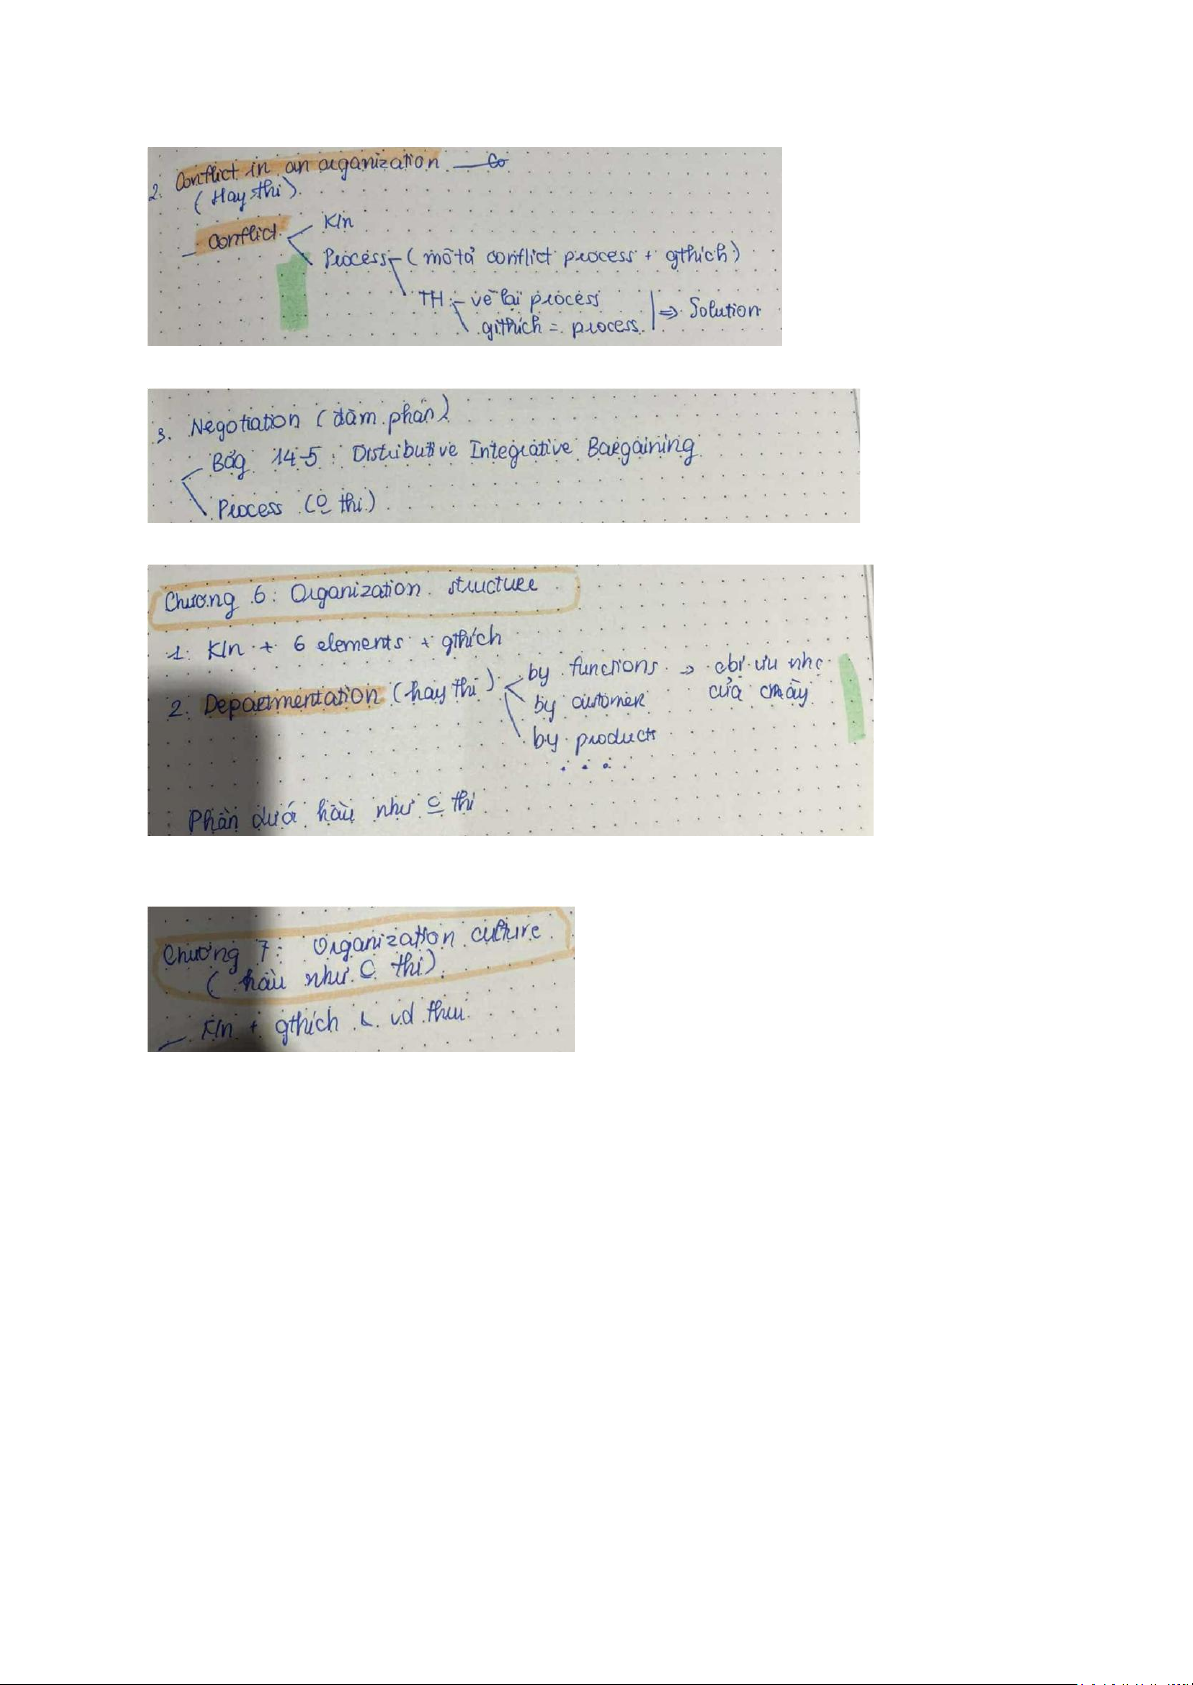 2. Conflict in an organization
(Hay thi)
- Conflict
K/n
Process (mô tả conflict process + gthích)
TH: - vẽ lại process
githích = process => Solution
3. Negotiation (đàm phán)
Bảg 14-5: Distributive Integrative Bargaining
Process (O thi)
Chương 6: Organization structure
1. K/n + 6 elements + gthích
2. Departmentation (hay thi)
by functions ->
by customer của
by products
...
Phần dưới hầu như O thi
Chương 7: Organization culture
(hầu như O thi)
- K/n + gthích v.d